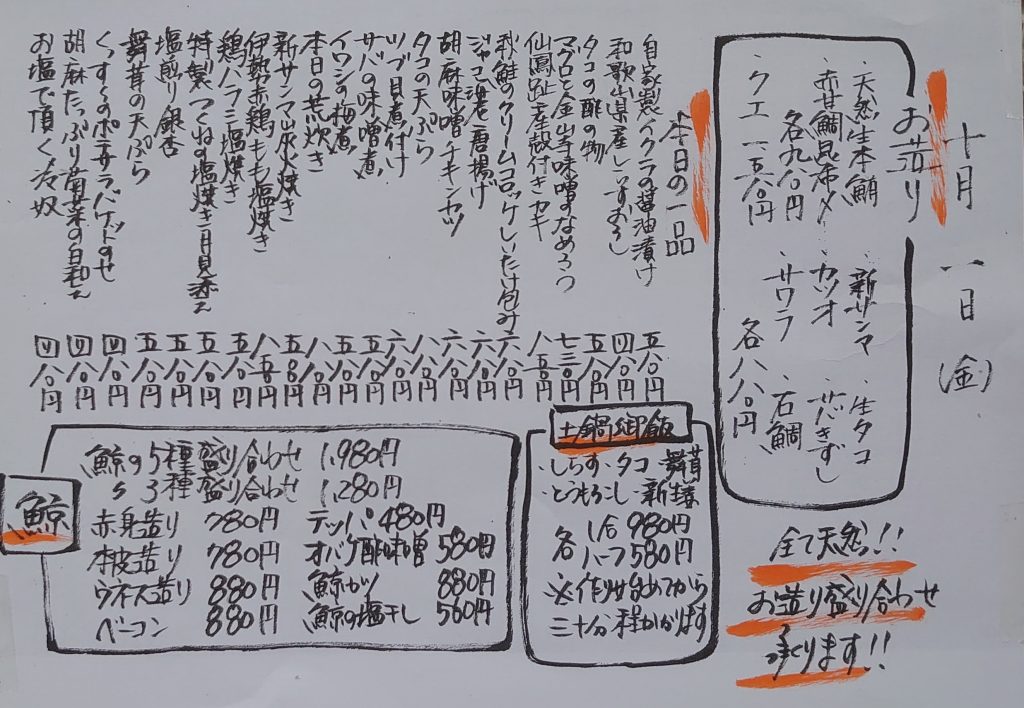 十月一日(金)
お造り
・天然生本鮪
・新サンマ
・生タコ
・赤甘鯛昆布〆
・カツオ
・サバきずし
各九八〇円
・サワラ
・石鯛
・クエ 一五八〇円
各八八〇円
全て天然!!
お造り盛り合わせ
承ります!!
今日の一品
自家製イクラの醤油漬け 五八〇円
タコの酢の物
和歌山県産しらすおろし 四八〇円
マグロと金山寺味噌のなめろう 七三〇円
仙鳳趾産殻付きカキ
秋鮭のクリームコロッケしいたけ包み 六八〇円
ジャコ海老唐揚げ 六八〇円
胡麻味噌チキンカツ 六八〇円
タコの天ぷら 八八〇円
ツブ貝煮付け 六八〇円
サバの味噌煮 五八〇円
イワシの梅煮 五八〇円
本日の荒炊き
新サンマ炭火焼き
伊勢赤鶏もも塩焼き 八五〇円
鶏ハラミ塩焼き 五八〇円
特製つくねの塩焼き月見添え 五八〇円
塩煎り銀杏 五八〇円
舞茸の天ぷら 五八〇円
くんすくのポテサラバケットのせ 四八〇円
胡麻たっぷり青菜の白和え 四八〇円
お塩で頂く冷奴 四八〇円
土鍋御飯
・しらす・タコ・舞茸
・とうもろこし・新生姜
各 1合 980円
ハーフ 580円
※作り始めてから
三十分程かかります
鯨
鯨の5種盛り合わせ 1,980円
〃 3種盛り合わせ 1,280円
赤身造り 780円
テッパ 480円
本皮造り 780円
オバケ酢味噌 580円
ウネス造り 880円
鯨カツ 880円
ベーコン 880円
鯨の塩干し 560円